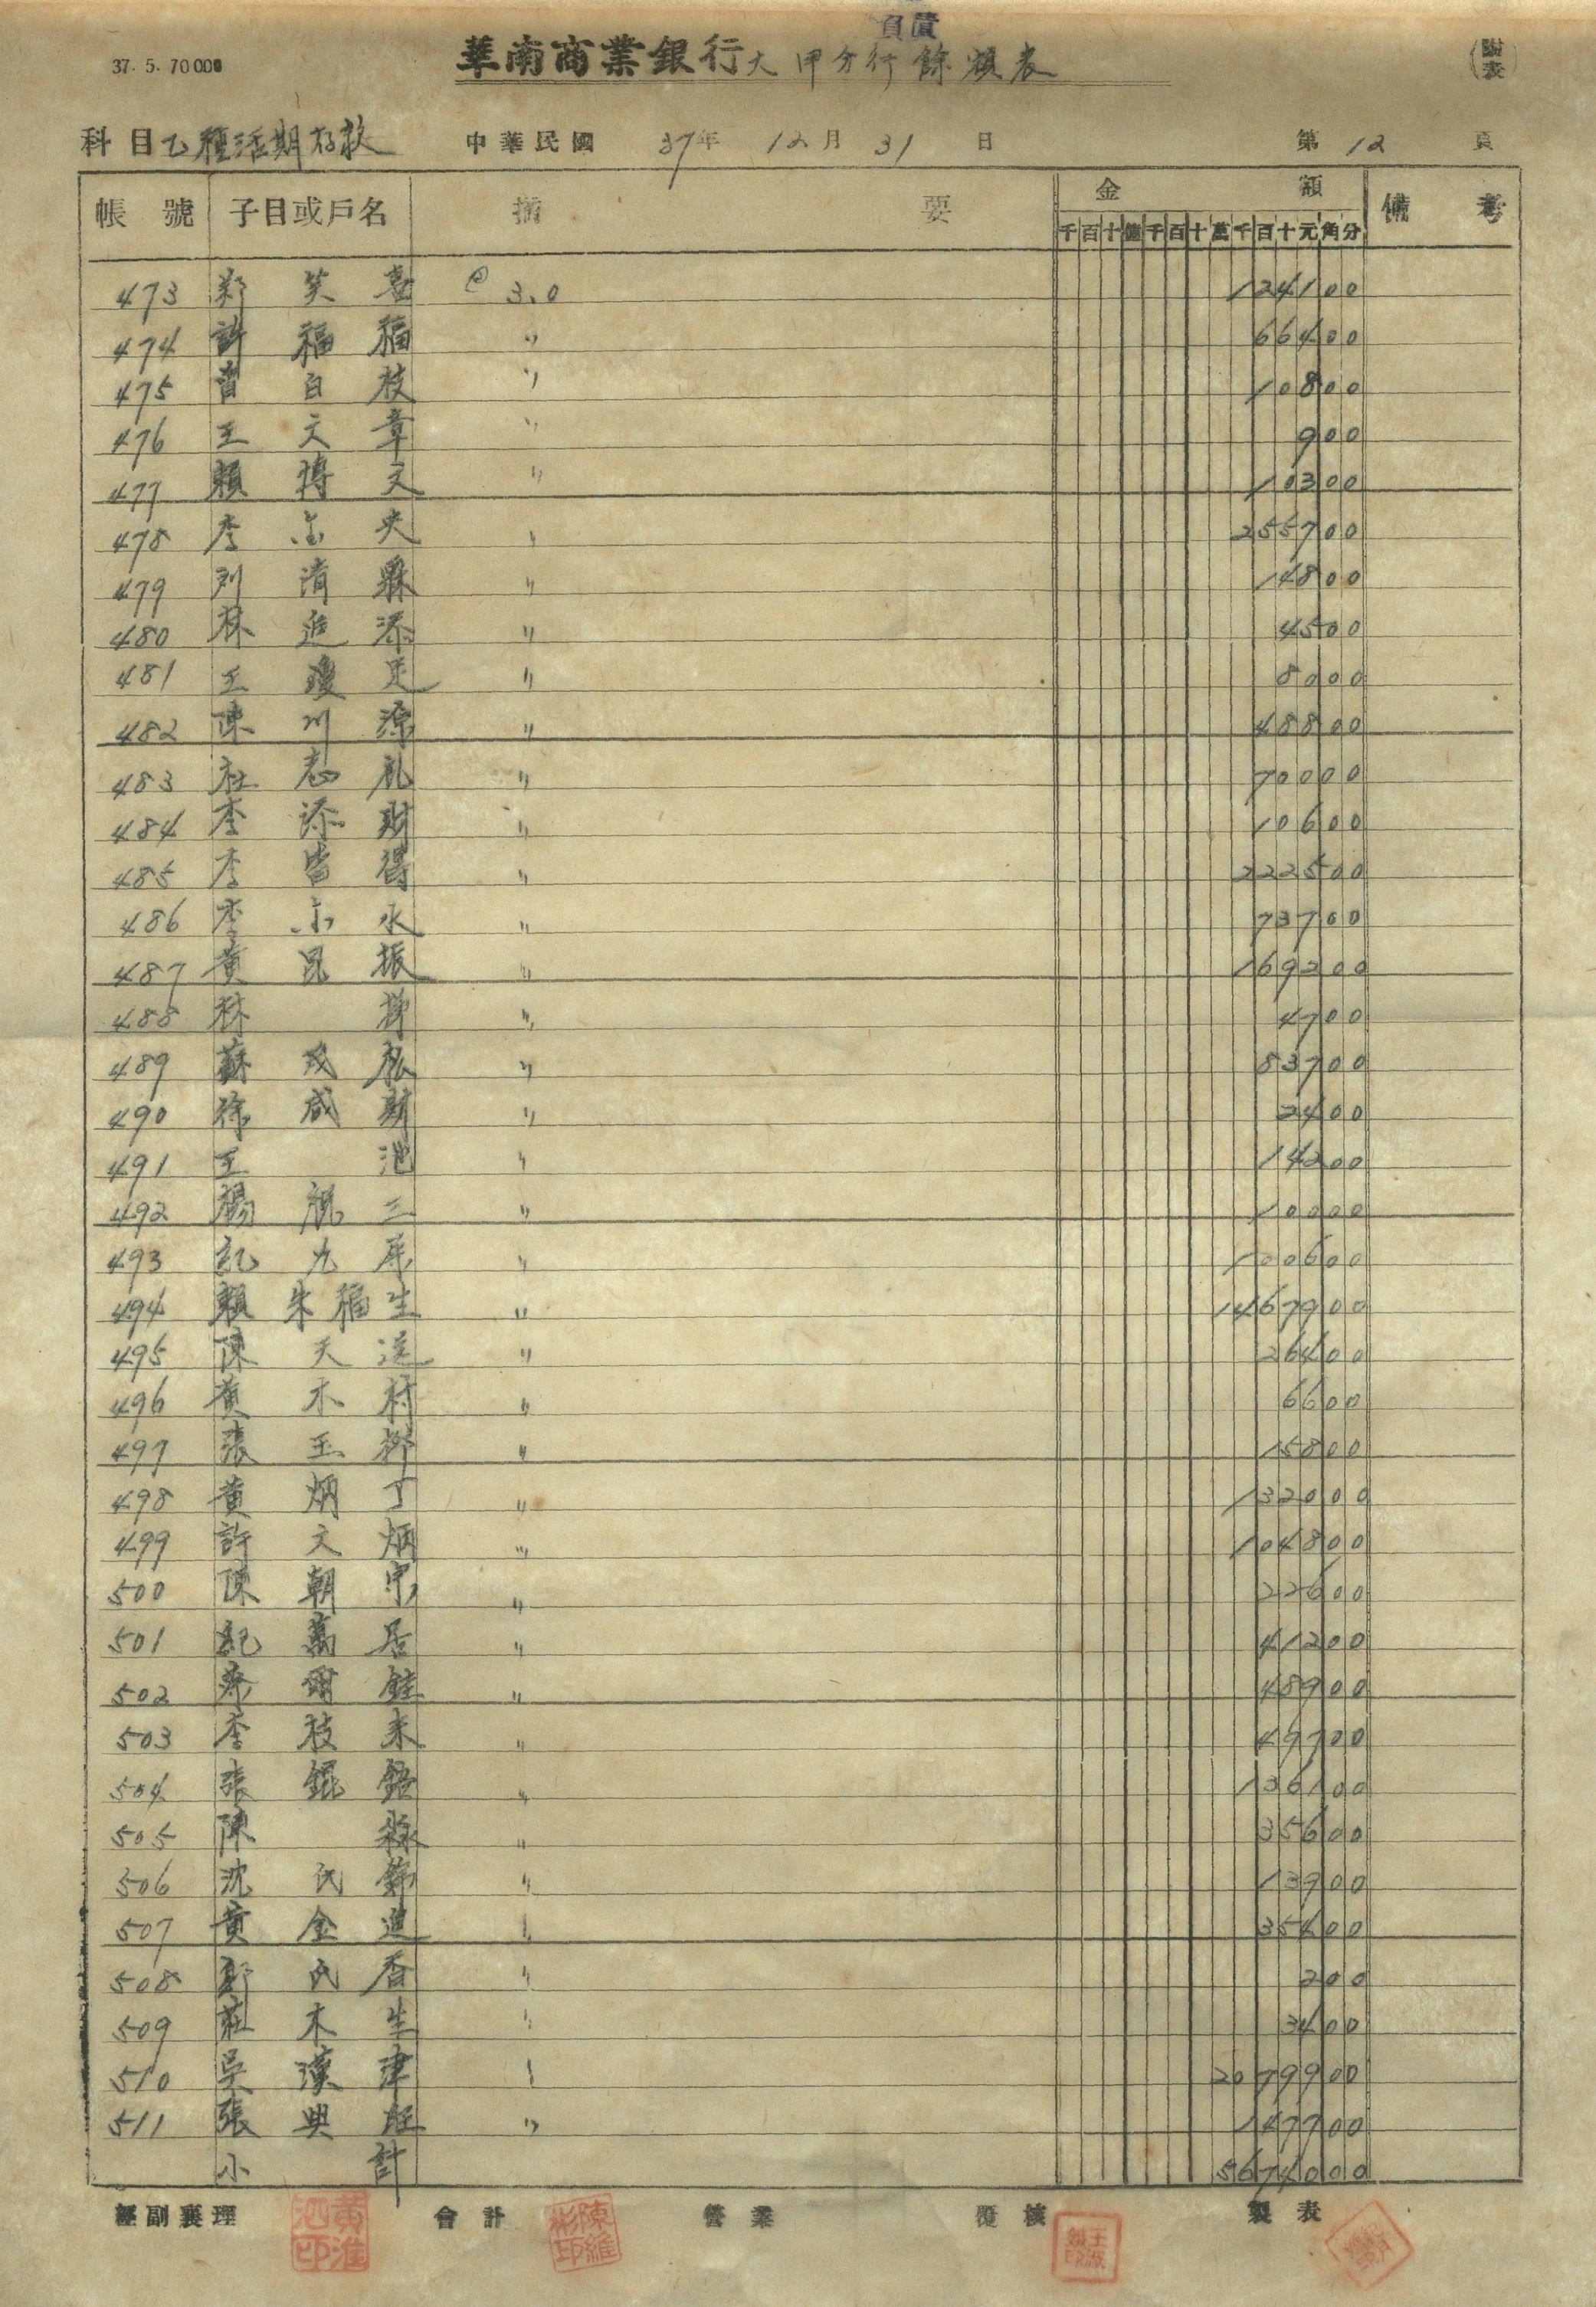 負債
37. 5. 70000
華南商業銀行大甲分行餘額表
(附表)
科目乙種活期存款 中華民國 37年 12月 31日 第 12 頁
帳號 子目或戶名 摘要 金額 備考
千百十億千百十萬千百十元角分
473 鄭笑喜 @ 3.0 124100
474 許福福 〃 66400
475 曾自枝 〃 10800
476 王文章 〃 900
477 賴博文 〃 10300
478 李金火 〃 255700
479 刘清 〃 14800
480 林進添 〃 4500
481 王瓊足 〃 8000
482 陳川源 〃 48800
483 杜志礼 〃 70000
484 李添財 〃 10600
485 李皆得 〃 222500
486 李金水 〃 73700
487 黃昆振 〃 169200
488 林 〃 4700
489 蘇茂松 〃 83700
490 徐成財 〃 2400
491 王池 〃 14200
492 楊三 〃 10000
493 記九 〃 100600
494 賴朱福生 〃 1467900
495 陳天送 〃 26400
496 黃木村 〃 6600
497 張玉 〃 15800
498 黃炳丁 〃 132000
499 許文炳 〃 104800
500 陳朝 〃 22600
501 紀萬居 〃 41200
502 爾銈 〃 48900
503 李枝来 〃 49700
504 張錕鋙 〃 136100
505 陳 〃 35600
506 沈氏 〃 13900
507 黃金進 〃 35400
508 鄭氏香 〃 200
509 莊木生 〃 3400
510 吳漢津 〃 2079900
511 張興旺 〃 147700
小計 5674000
經副襄理 黃淮泗印 會計 陳維彬印 營業 覆核 製表